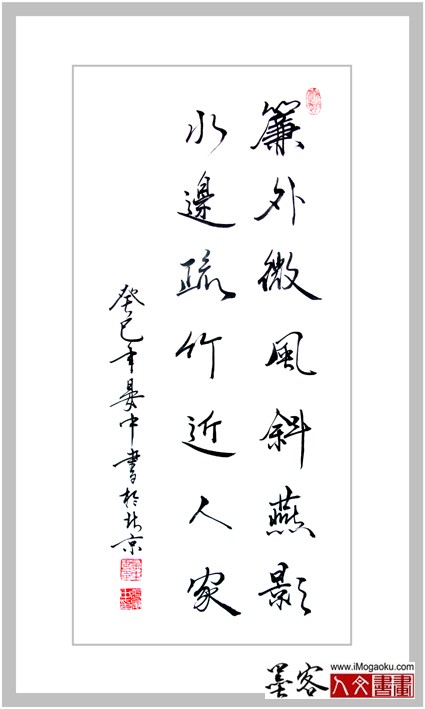 簾外微風斜燕影
水邊疏竹近人家
癸巳年晏中書於北京
墨客
www.iMogaoku.com
人文書畫